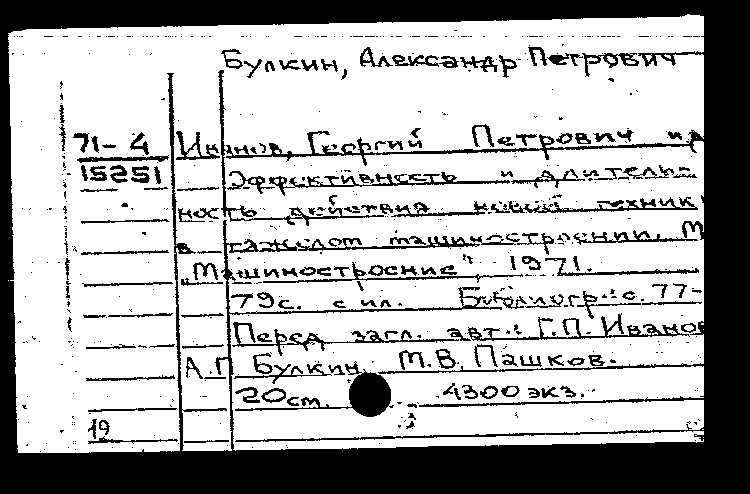 Булкин, Александр Петрович
71-4 Иванов, Георгий Петрович и д
15251 Эффективность и длитель-
ность действия новой техник
в тяжелом машиностроении. М
„Машиностроение", 1971.
79с. с ил. Библиогр.: с. 77-
Перед загл. авт.: Г.П. Иванов
А.П Булкин, М.В. Пашков.
20см. 4300 экз.
19